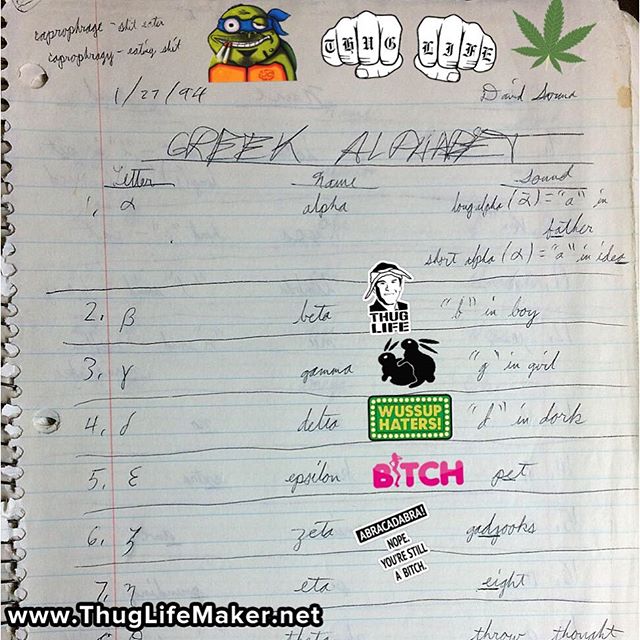 caprophrage - shit eater
caprophragy - eating shit
THUG LIFE
1/27/94 David
GREEK ALPHABET
Letter Name Sound
1. α alpha long alpha (ᾱ) = "a" in
father
short alpha (α) = "a" in idea
THUG
LIFE
2. β beta "b" in boy
3. γ gamma "g" in girl
WUSSUP
HATERS!
4. δ delta "d" in dork
5. ε epsilon BITCH pet
ABRACADABRA!
NOPE.
YOU'RE STILL
A BITCH.
6. ζ zeta gadzooks
7. η eta eight
www.ThugLifeMaker.net
theta throw thought